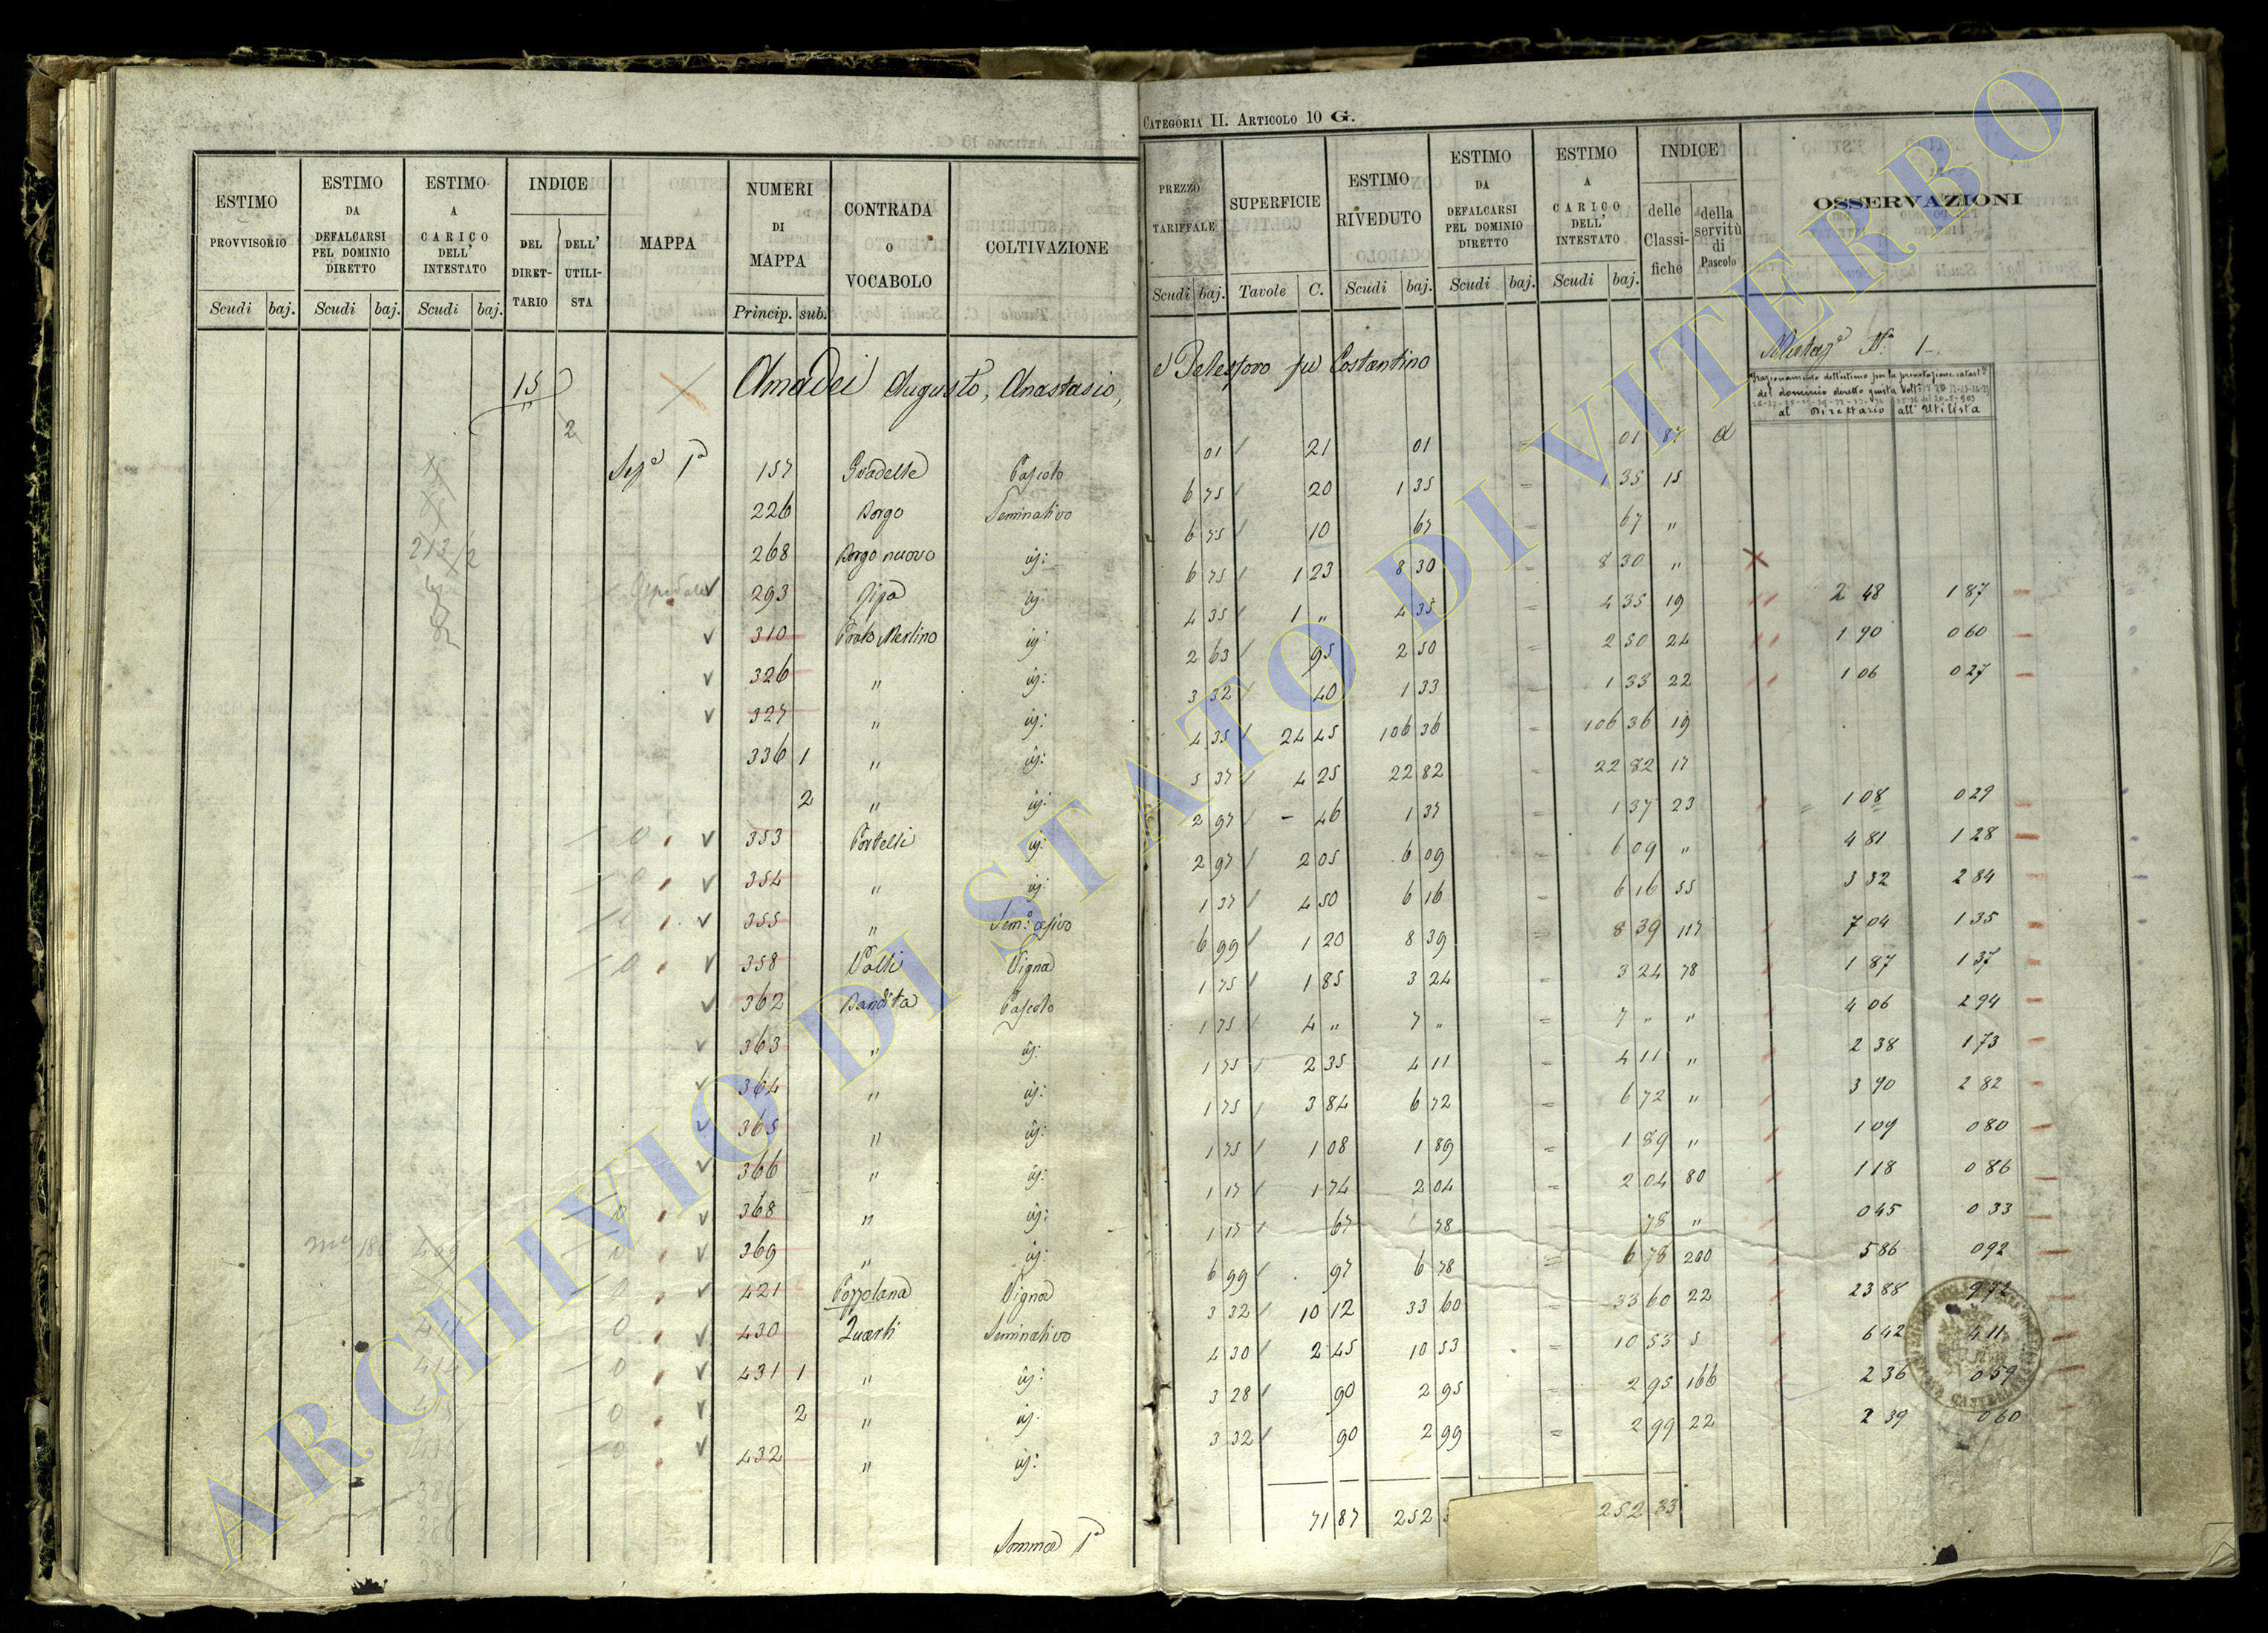 CATEGORIA II. ARTICOLO 10 G.
ESTIMO PROVVISORIO Scudi baj.
ESTIMO DA DEFALCARSI PEL DOMINIO DIRETTO Scudi baj.
ESTIMO A CARICO DELL' INTESTATO Scudi baj.
INDICE DEL DIRETTARIO DELL' UTILISTA
MAPPA
NUMERI DI MAPPA Princip. sub.
CONTRADA O VOCABOLO
COLTIVAZIONE
PREZZO TARIFFALE Scudi baj.
SUPERFICIE Tavole C.
ESTIMO RIVEDUTO Scudi baj.
ESTIMO DA DEFALCARSI PEL DOMINIO DIRETTO Scudi baj.
ESTIMO A CARICO DELL' INTESTATO Scudi baj.
INDICE delle Classifiche della servitù di Pascolo
OSSERVAZIONI
15 Amadei Augusto, Anastasio, e Telesforo fu Costantino
2
al Direttario all' Utilista
Sez.e 1a 157 Pascolo 01 21 01 = 01 87 a
226 Borgo Seminativo 6 75 20 1 35 = 1 35 15
268 Borgo nuovo id: 6 75 10 67 = 67 "
Ospedale 293 Ripa id: 6 75 1 23 8 30 = 8 30 "
310 Prato Merlino id: 4 35 1 " 4 35 = 4 35 19 2 48 1 87
326 " id: 2 63 95 2 50 = 2 50 24 1 90 0 60
327 " id: 3 32 40 1 33 = 1 33 22 1 06 0 27
336 1 " id: 4 35 24 45 106 36 = 106 36 19
2 " id: 5 37 4 25 22 82 = 22 82 17
353 Portelli id: 2 97 – 46 1 37 = 1 37 23 1 08 0 29
354 " id: 2 97 2 05 6 09 = 6 09 " 4 81 1 28
355 " 1 37 4 50 6 16 = 6 16 55 3 32 2 84
358 Valli Vigna 6 99 1 20 8 39 = 8 39 117 7 04 1 35
362 Bandita Pascolo 1 75 1 85 3 24 = 3 24 78 1 87 1 37
363 " id: 1 75 4 " 7 " = 7 " " 4 06 2 94
364 " id: 1 75 2 35 4 11 = 4 11 " 2 38 1 73
365 " id: 1 75 3 84 6 72 = 6 72 " 3 90 2 82
366 " id: 1 75 1 08 1 89 = 1 89 " 1 09 0 80
368 " id: 1 17 1 74 2 04 = 2 04 80 1 18 0 86
369 " id: 1 17 67 78 78 " 0 45 0 33
421 Pozzolana Vigna 6 99 97 6 78 = 6 78 200 5 86 0 92
430 Quarti Seminativo 3 32 10 12 33 60 = 33 60 22 23 88 9 72
431 1 " id: 4 30 2 45 10 53 = 10 53 5 6 42 4 11
2 " id: 3 28 90 2 95 = 2 95 166 2 36 0 59
432 " id: 3 32 90 2 99 = 2 99 22 2 39 0 60
Somma 1a 71 87 252 252 33
ARCHIVIO DI STATO DI VITERBO